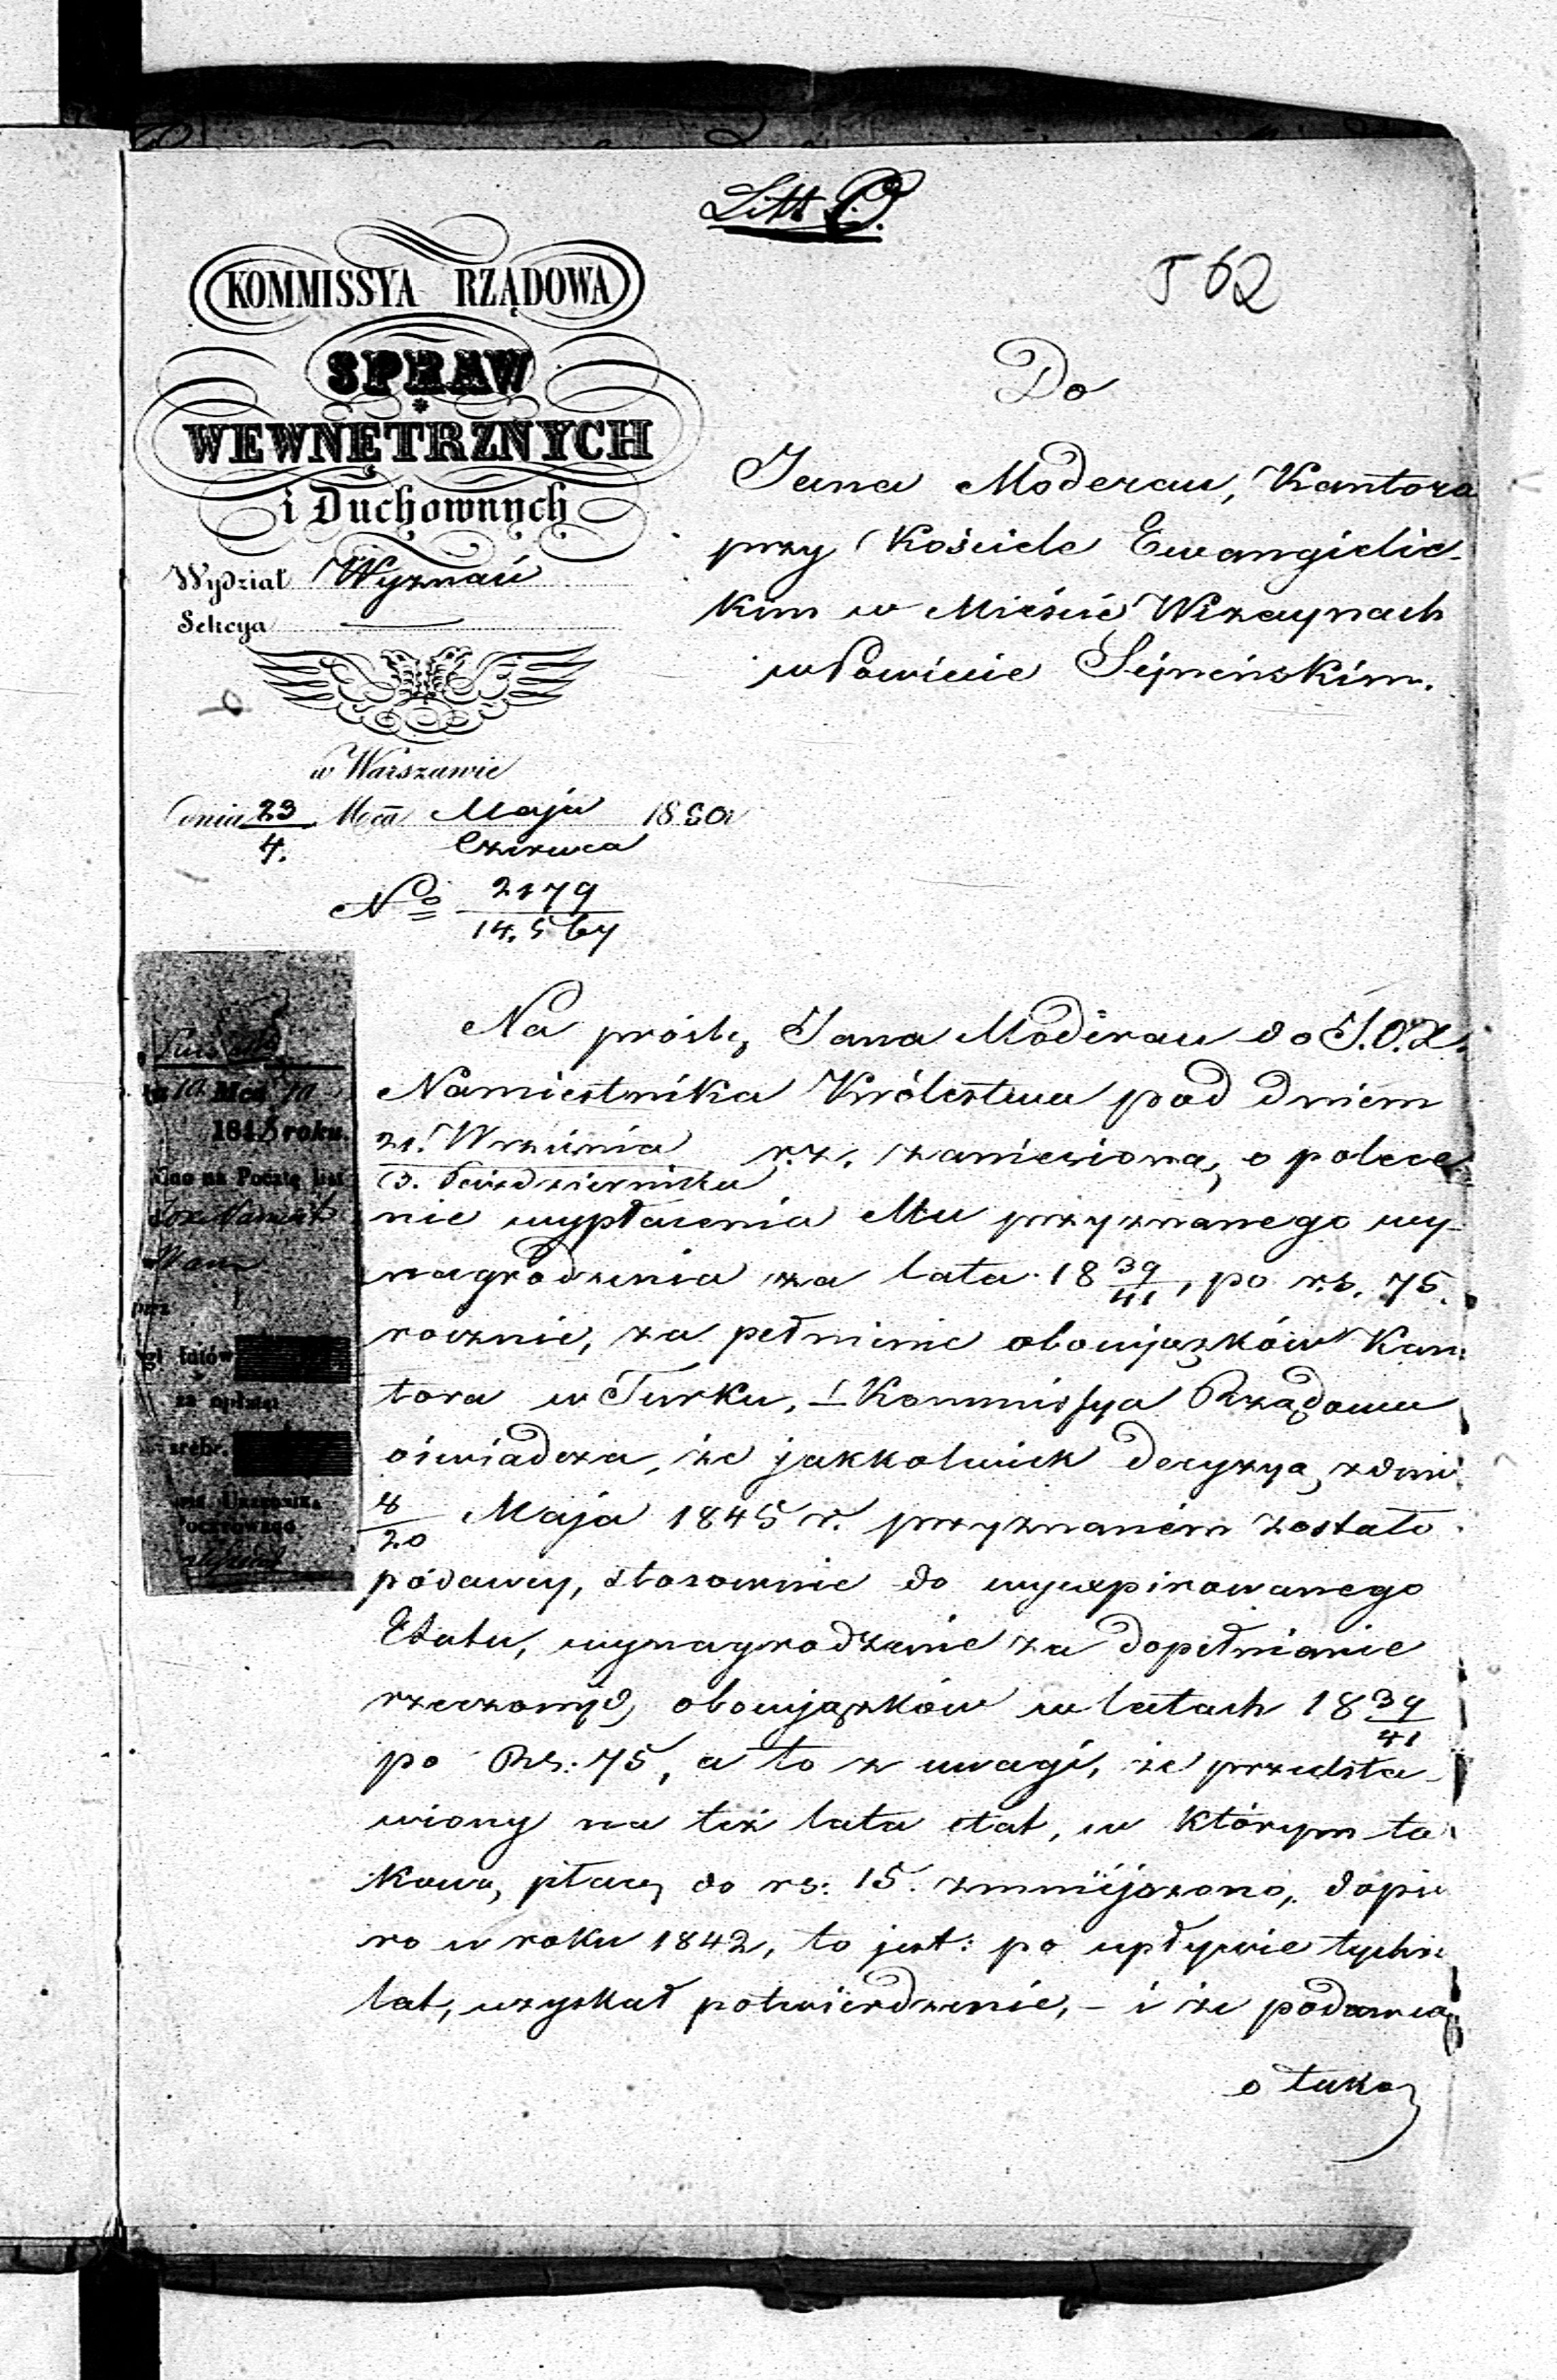 Litt O.
562
KOMMISSYA RZĄDOWA
SPRAW
WEWNĘTRZNYCH
i Duchownych
Wydział Wyznań
Sekcya
w Warszawie
dnia 23/4. Mca Maja/Czerwca 1850 r
No 2179/14,567
Do
Jana Moderau, Kantora
przy Kościele Ewangielic-
kim w Mieście Wiżaynach
w Powiecie Sejneńskim.
10 Mca 10
184 roku.
na Pocztę list
w Warsz
prz
łutów
za opłatą
srebr.
Urzędnika
Pocztowego
Na proźbę Jana Moderau do J.O.X.
Namiestnika Królestwa pod dniem
21. Września/3. Października r.z. zaniesioną, o polece
nie wypłacenia Mu przyznanego wy-
nagrodzenia za lata 18 39/41, po rs. 75.
rocznie, za pełnienie obowiązków Kan-
tora w Turku, – Kommissya Rządowa
oświadcza, że jakkolwiek decyzyą z dnia
8/20 Maja 1845 r. przyznanem zostało
podawcy, stosownie do wyexpirowanego
Etatu, wynagrodzenie za dopełnianie
rzeczonych obowiązków w latach 18 39/41
po Rs: 75, a to z uwagi, że przedsta-
wiony na też lata etat, w którym ta-
kową płacę do rs: 15. zmniejszono, dopie
ro w roku 1842, to jest: po upływie tychże
lat, uzyskał potwierdzenie, – i że podawca
o tako